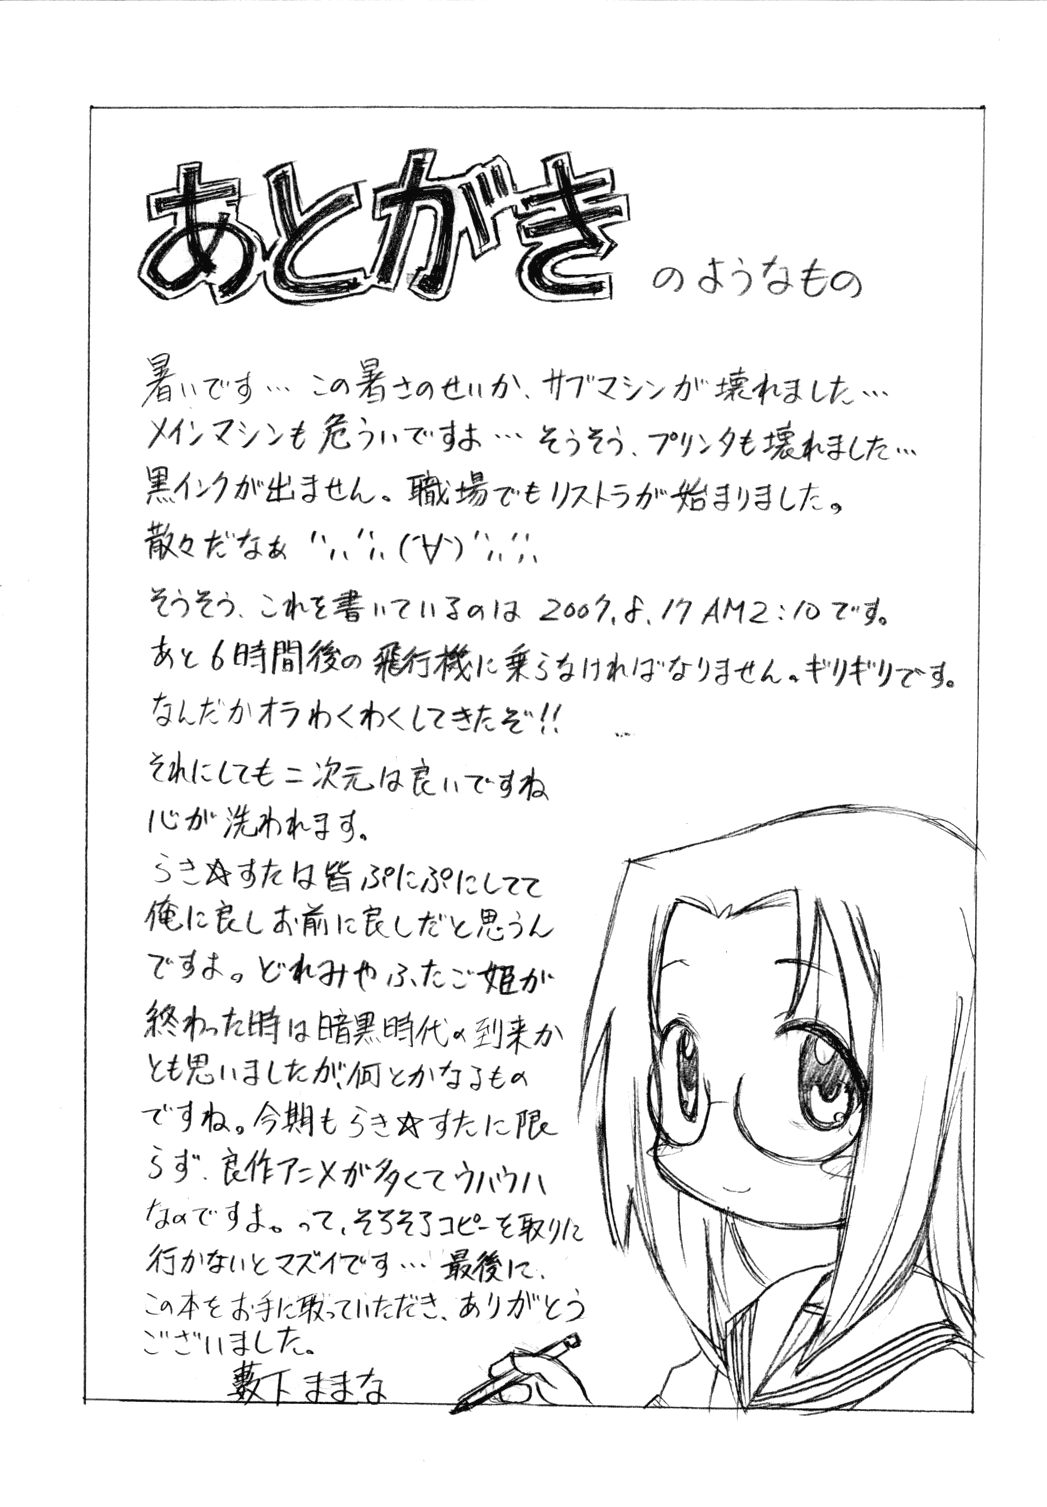 あとがき のようなもの
暑いです… この暑さのせいか、サブマシンが壊れました…
メインマシンも危ういですよ… そうそう、プリンタも壊れました…
黒インクが出ません。職場でもリストラが始まりました。
散々だなぁ ゙;,;゙;,(´∀`)゙;,;゙;,
そうそう、これを書いているのは 2007.8.17 AM2:10です。
あと6時間後の飛行機に乗らなければなりません。ギリギリです。
なんだかオラわくわくしてきたぞ!!
それにしても二次元は良いですね
心が洗われます。
らき☆すたは皆ぷにぷにしてて
俺に良しお前に良しだと思うん
ですよ。どれみやふたご姫が
終わった時は暗黒時代の到来か
とも思いましたが、何とかなるもの
ですね。今期もらき☆すたに限
らず、良作アニメが多くてウハウハ
なのですよ。って、そろそろコピーを取りに
行かないとマズイです… 最後に、
この本をお手に取っていただき、ありがとう
ございました。
藪下ままな